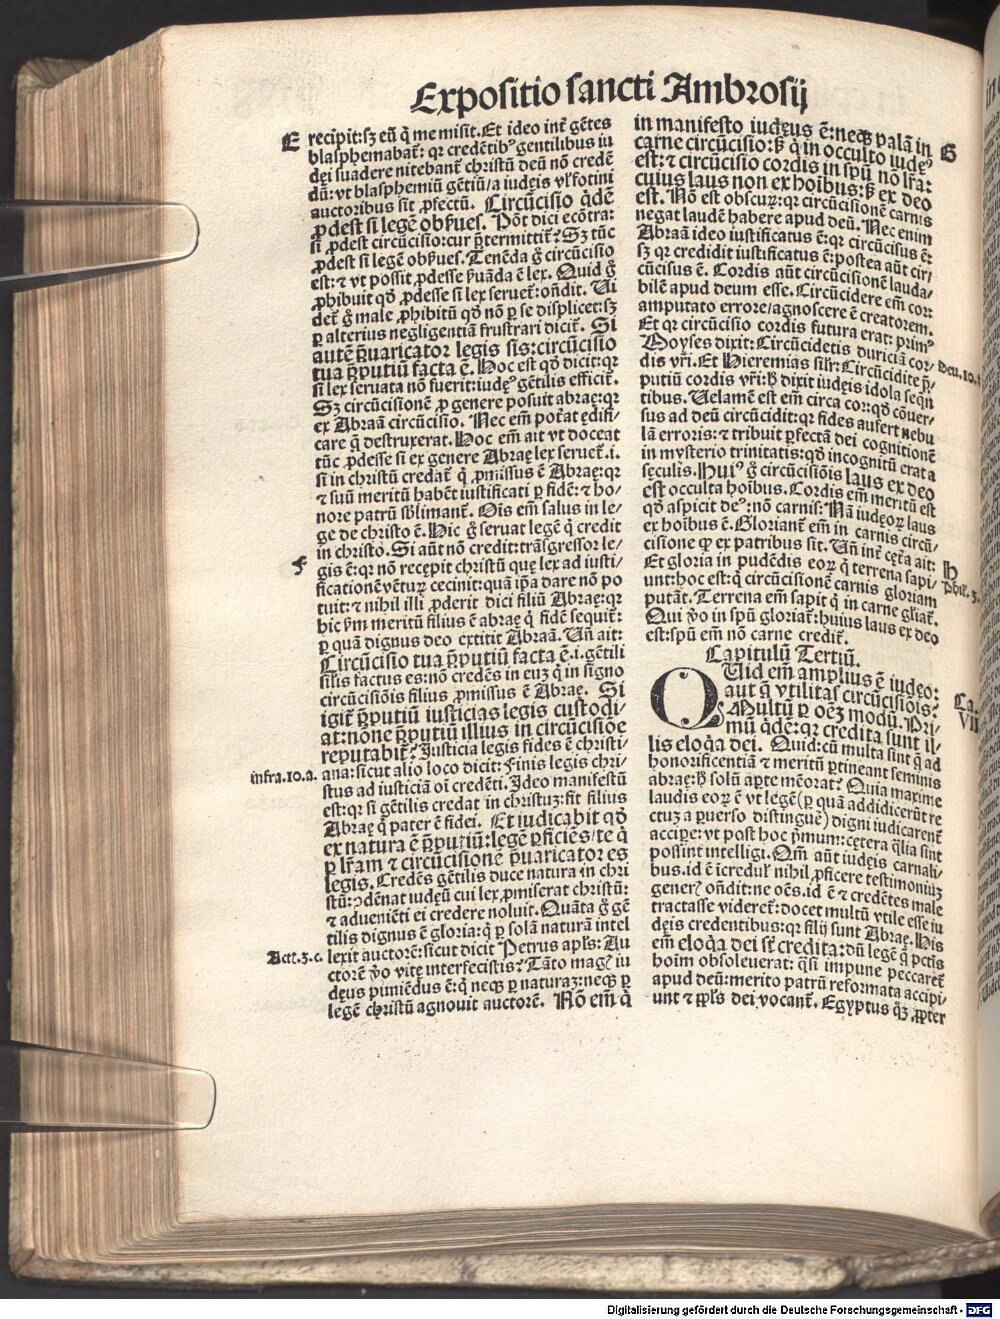 Expositio sancti Ambrosij
E
recipit:sꝫ eũ q̃ me misit.Et ideo int̃ gẽtes
blasphemabat̃: qꝛ credẽtibꝰ gentilibus iu
dęi suadere nitebant̃ christũ deũ nõ credẽ
dũ:vt blasphemiũ gẽtiũ/a iudęis vl̃ fotini
auctoribus sit ꝓfectũ. Circũcisio q̃dẽ
ꝓdest si legẽ obs̃ues. Põt dici ecõtra:
si ꝓdest circũcisio:cur p̃termittit̃? Sꝫ tũc
ꝓdest si legẽ obs̃ues.Tenẽda g̊ circũcisio
est:⁊ vt possit ꝓdesse s̃uãda ẽ lex. Quid g̊
ꝓhibuit qđ ꝓdesse si lex seruet̃:oñdit. Vi
det̃ g̊ male ꝓhibitũ qđ nõ ꝑ se displicet:sꝫ
ꝑ alterius negligentiã frustrari dicit̃. Si
autẽ p̃uaricator legis sis:circũcisio
tua p̃putiũ facta ẽ. Hoc est qđ dicit:qꝛ
si lex seruata nõ fuerit:iudęꝰ gẽtilis efficit̃.
Sꝫ circũcisionẽ ꝓ genere posuit abraę:qꝛ
ex Abraã circũcisio. Nec em̃ pot̃at ędifi/
care q̃ destruxerat. Hoc em̃ ait vt doceat
tũc ꝓdesse si ex genere Abraę lex seruet̃.i.
si in christũ credat̃ q̃ ꝓmissus ẽ Abraę:qꝛ
⁊ suũ meritũ habẽt iustificati ꝑ fidẽ:⁊ ho/
nore patrũ sb̃limant̃. Oĩs em̃ salus in le/
ge de christo ẽ. Hic g̊ seruat legẽ q̃ credit
in christo. Si aũt nõ credit:trãsgressor le/
F
gis ẽ:qꝛ nõ recępit christũ quę lex ad iusti/
ficationẽ vẽturꝫ cecinit:quã ip̃a dare nõ po
tuit:⁊ nihil illi ꝓderit dici filiũ Abraę:qꝛ
hic v̾m meritũ filius ẽ abraę q̃ fidẽ sequit̃:
ꝑ quã dignus deo extitit Abraã. Vñ ait:
Circũcisio tua p̃putiũ facta ẽ.i.gẽtili
sil̃is factus es:nõ credẽs in euꝫ q̃ in signo
circũcisiõis filius ꝓmissus ẽ Abraę. Si
igit̃ p̃putiũ iusticias legis custodi/
at:nõne p̃putiũ illius in circũcisiõe
reputabit̃? Iusticia legis fides ẽ christi/
infra.10.a.
ana:sicut alio loco dicit: Finis legis chri/
stus ad iusticiã oi credẽti. Ideo manifestũ
est:qꝛ si gẽtilis credat in christuꝫ:fit filius
Abraę q̃ pater ẽ fidei. Et iudicabit qđ
ex natura ẽ p̃putiũ:legẽ ꝑficiẽs/te q̃
ꝑ lr̃am ⁊ circũcisionẽ p̃uaricator es
legis. Credẽs gẽtilis duce natura in chri
stũ:ↄdẽnat iudęũ cui lex ꝓmiserat christũ:
⁊ aduenie͂ti ei credere noluit. Quãta g̊ gẽ
tilis dignus ẽ gloria:q̃ ꝑ solã naturã intel
Act.3.c.
lexit auctorẽ:sicut dicit Petrus apl̃s: Au
ctorẽ v̊o vitę interfecistis? Tãto magꝭ iu
dęus puniẽdus ẽ:q̃ neqꝫ ꝑ naturaꝫ:neqꝫ ꝑ
legẽ christũ agnouit auctorẽ. Nõ em̃ q̃
in manifesto iudęus ẽ:neqꝫ palã in
G
carne circũcisio:sꝫ q̃ in occulto iudęꝰ
est:⁊ circũcisio cordis in spũ nõ lr̃a:
cuius laus non ex hoĩbus:sꝫ ex deo
est. Nõ est obscuꝝ:qꝛ circũcisionẽ carnis
negat laudẽ habere apud deũ. Nec enim
Abraã ideo iustificatus ẽ:qꝛ circũcisus ẽ:
sꝫ qꝛ credidit iustificatus ẽ:postea aũt cir/
cũcisus ẽ. Cordis aũt circũcisionẽ lauda/
bilẽ apud deum esse. Circũcidere em̃ cor:
amputato errore/agnoscere ẽ creatorem.
Et qꝛ circũcisio cordis futura erat: primꝰ
Moyses dixit: Circũcidetis duriciã cor/
Deu.10.
dis vr̃i. Et Hieremias sil̃r: Circũcidite p̃/
putiũ cordis vr̃i:h̾ dixit iudęis idola seqñ
tibus. Velamẽ est em̃ circa cor:qđ cõuer/
sus ad deũ circũcidit:qꝛ fides aufert nebu
lã erroris:⁊ tribuit ꝑfectã dei cognitionẽ
in mysterio trinitatis:qđ incognitũ erat a
sęculis. Huiꝰ g̊ circũcisiõis laus ex deo
est occulta hoĩbus. Cordis em̃ meritũ est
qđ aspicit deꝰ:nõ carnis: Nã iudęoꝝ laus
ex hoĩbus ẽ. Gloriant̃ em̃ in carnis circũ/
cisione ꝙ ex patribus sit. Vñ int̃ cęt̃a ait:
H
Et gloria in pudẽdis eoꝝ q̃ terrena sapi/
Phil.3.
unt:hoc est:q̃ circũcisionẽ carnis gloriam
putãt. Terrena em̃ sapit q̃ in carne gl̃iat̃.
Qui v̊o in spũ gloriat̃:huius laus ex deo
est:spũ em̃ nõ carne credit̃.
Capitulũ Tertiũ.
QVid em̃ amplius ẽ iudęo:
aut q̃ vtilitas circũcisiõis?
Ca.
VII
Multũ ꝑ oẽꝫ modũ. Pri/
mũ q̃dẽ:qꝛ credita sunt il/
lis eloq̃a dei. Quid:cũ multa sint q̃ ad
honorificentiã ⁊ meritũ ꝑtineant seminis
abraę:h̾ solũ aꝑte mẽorat? Quia maxime
laudis eoꝝ ẽ vt legẽ(ꝑ quã addidicerũt re
ctuꝫ a ꝑuerso distinguẽ) digni iudicarent̃
accipe:vt post hoc p̃mum:cętera q̃lia sint
possint intelligi. Qm̃ aũt iudęis carnali/
bus.id ẽ icredul̃ nihil ꝓficere testimoniuꝫ
generꝭ oñdit:ne oẽs.id ẽ ⁊ credẽtes male
tractasse videret̃:docet multũ vtile esse iu
dęis credentibus:qꝛ filij sunt Abraę. His
em̃ eloq̃a dei st̃ credita:dũ legẽ q̃ pctĩs
hoĩm obsoleuerat: q̃si impune peccaret̃
apud deũ:merito patrũ reformata accipi/
unt ⁊ ppl̃s dei vocant̃. Egyptus q̃ꝫ ꝓpter
Digitalisierung gefördert durch die Deutsche Forschungsgemeinschaft - DFG